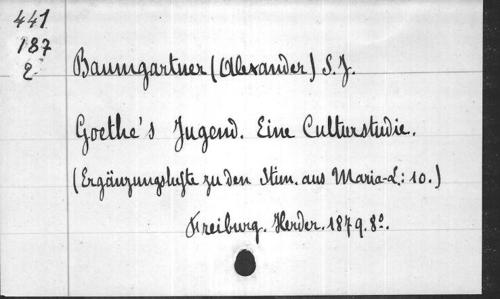 441
187
E
Baumgartner (Alexander) S. J.
Goethe's Jugend. Eine Culturstudie.
(Ergänzungshefte zu den Stim. aus Maria-L: 10.)
Freiburg. Herder. 1879. 8º.